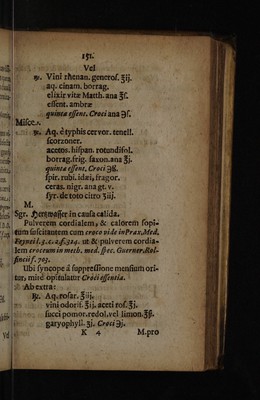 151.
Vel
℞. Vini rhenan. generos. ʒij.
aq. cinam. borrag.
elixir vitæ Matth. ana ʒſ.
essent. ambræ
quintæ essent. Croci ana ℈ſ.
Misce.
℞. Aq. è typhis cervor. tenell.
scorzoner.
acetos. hispan. rotundifol.
borrag. frig. saxon. ana ʒj.
quintæ essent. Croci ℈ß.
spir. rubi. idæi, fragor.
ceras. nigr. ana gt. v.
syr. de toto citro ʒiij
M.
Sgr. Hertzwasser in causa calida.
Pulverem cordialem, & calorem sopi-
tum suscitantem cum croco vide in Prax. Med.
Freyneri l. 3. c. 2. f. 314. ut & pulverem cordia-
lem croceum in meth. med. spec. Guerner. Rol-
fincii f. 703.
Ubi syncope à suppressione mensium ori-
tur, mirè opitulatur Croci essentia.
Ab extra:
℞. Aq. rosar. ʒiij.
vini odorif. ʒij. aceti ros. ʒj.
succi pomor. redol. vel limon. ʒß.
garyophyll. ʒj. Croci ℈j.
K 4 M. pro